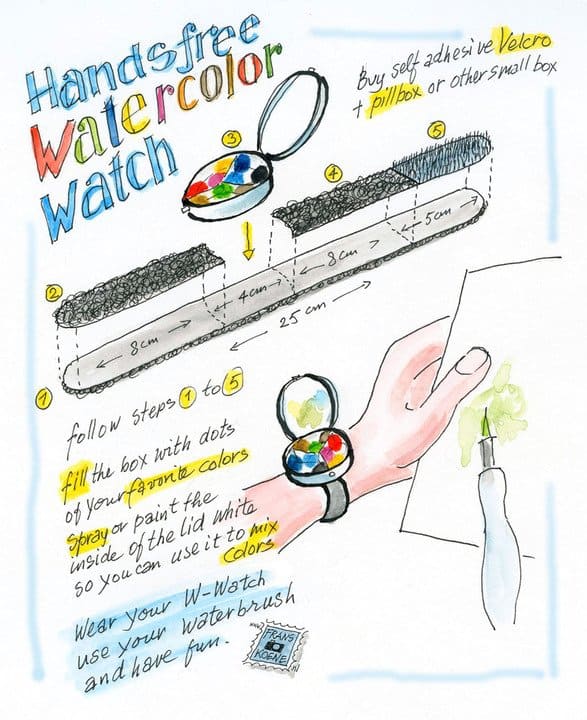 Handsfree
Watercolor
Watch
Buy self adhesive Velcro
+ pillbox or other small box
3
5
4
2
5cm
8cm
4cm
25 cm
8cm
1
follow steps 1 to 5
fill the box with dots
of your favorite colors
spray or paint the
inside of the lid white
so you can use it to mix
colors
Wear your W-Watch
use your waterbrush
and have fun.
FRANS
KOENE